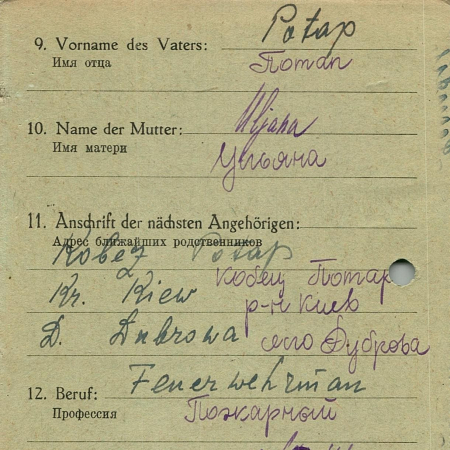 9. Vorname des Vaters: Potap
Имя отца Потап
10. Name der Mutter: Uljana
Имя матери Ульяна
11. Anschrift der nächsten Angehörigen:
Адрес ближайших родственников
Kobez Potap
Кобец Потап
Kr. Kiew
р-н Киев
D. Dubrowa
село Дуброва
12. Beruf: Feuerwehrman
Профессия Пожарный